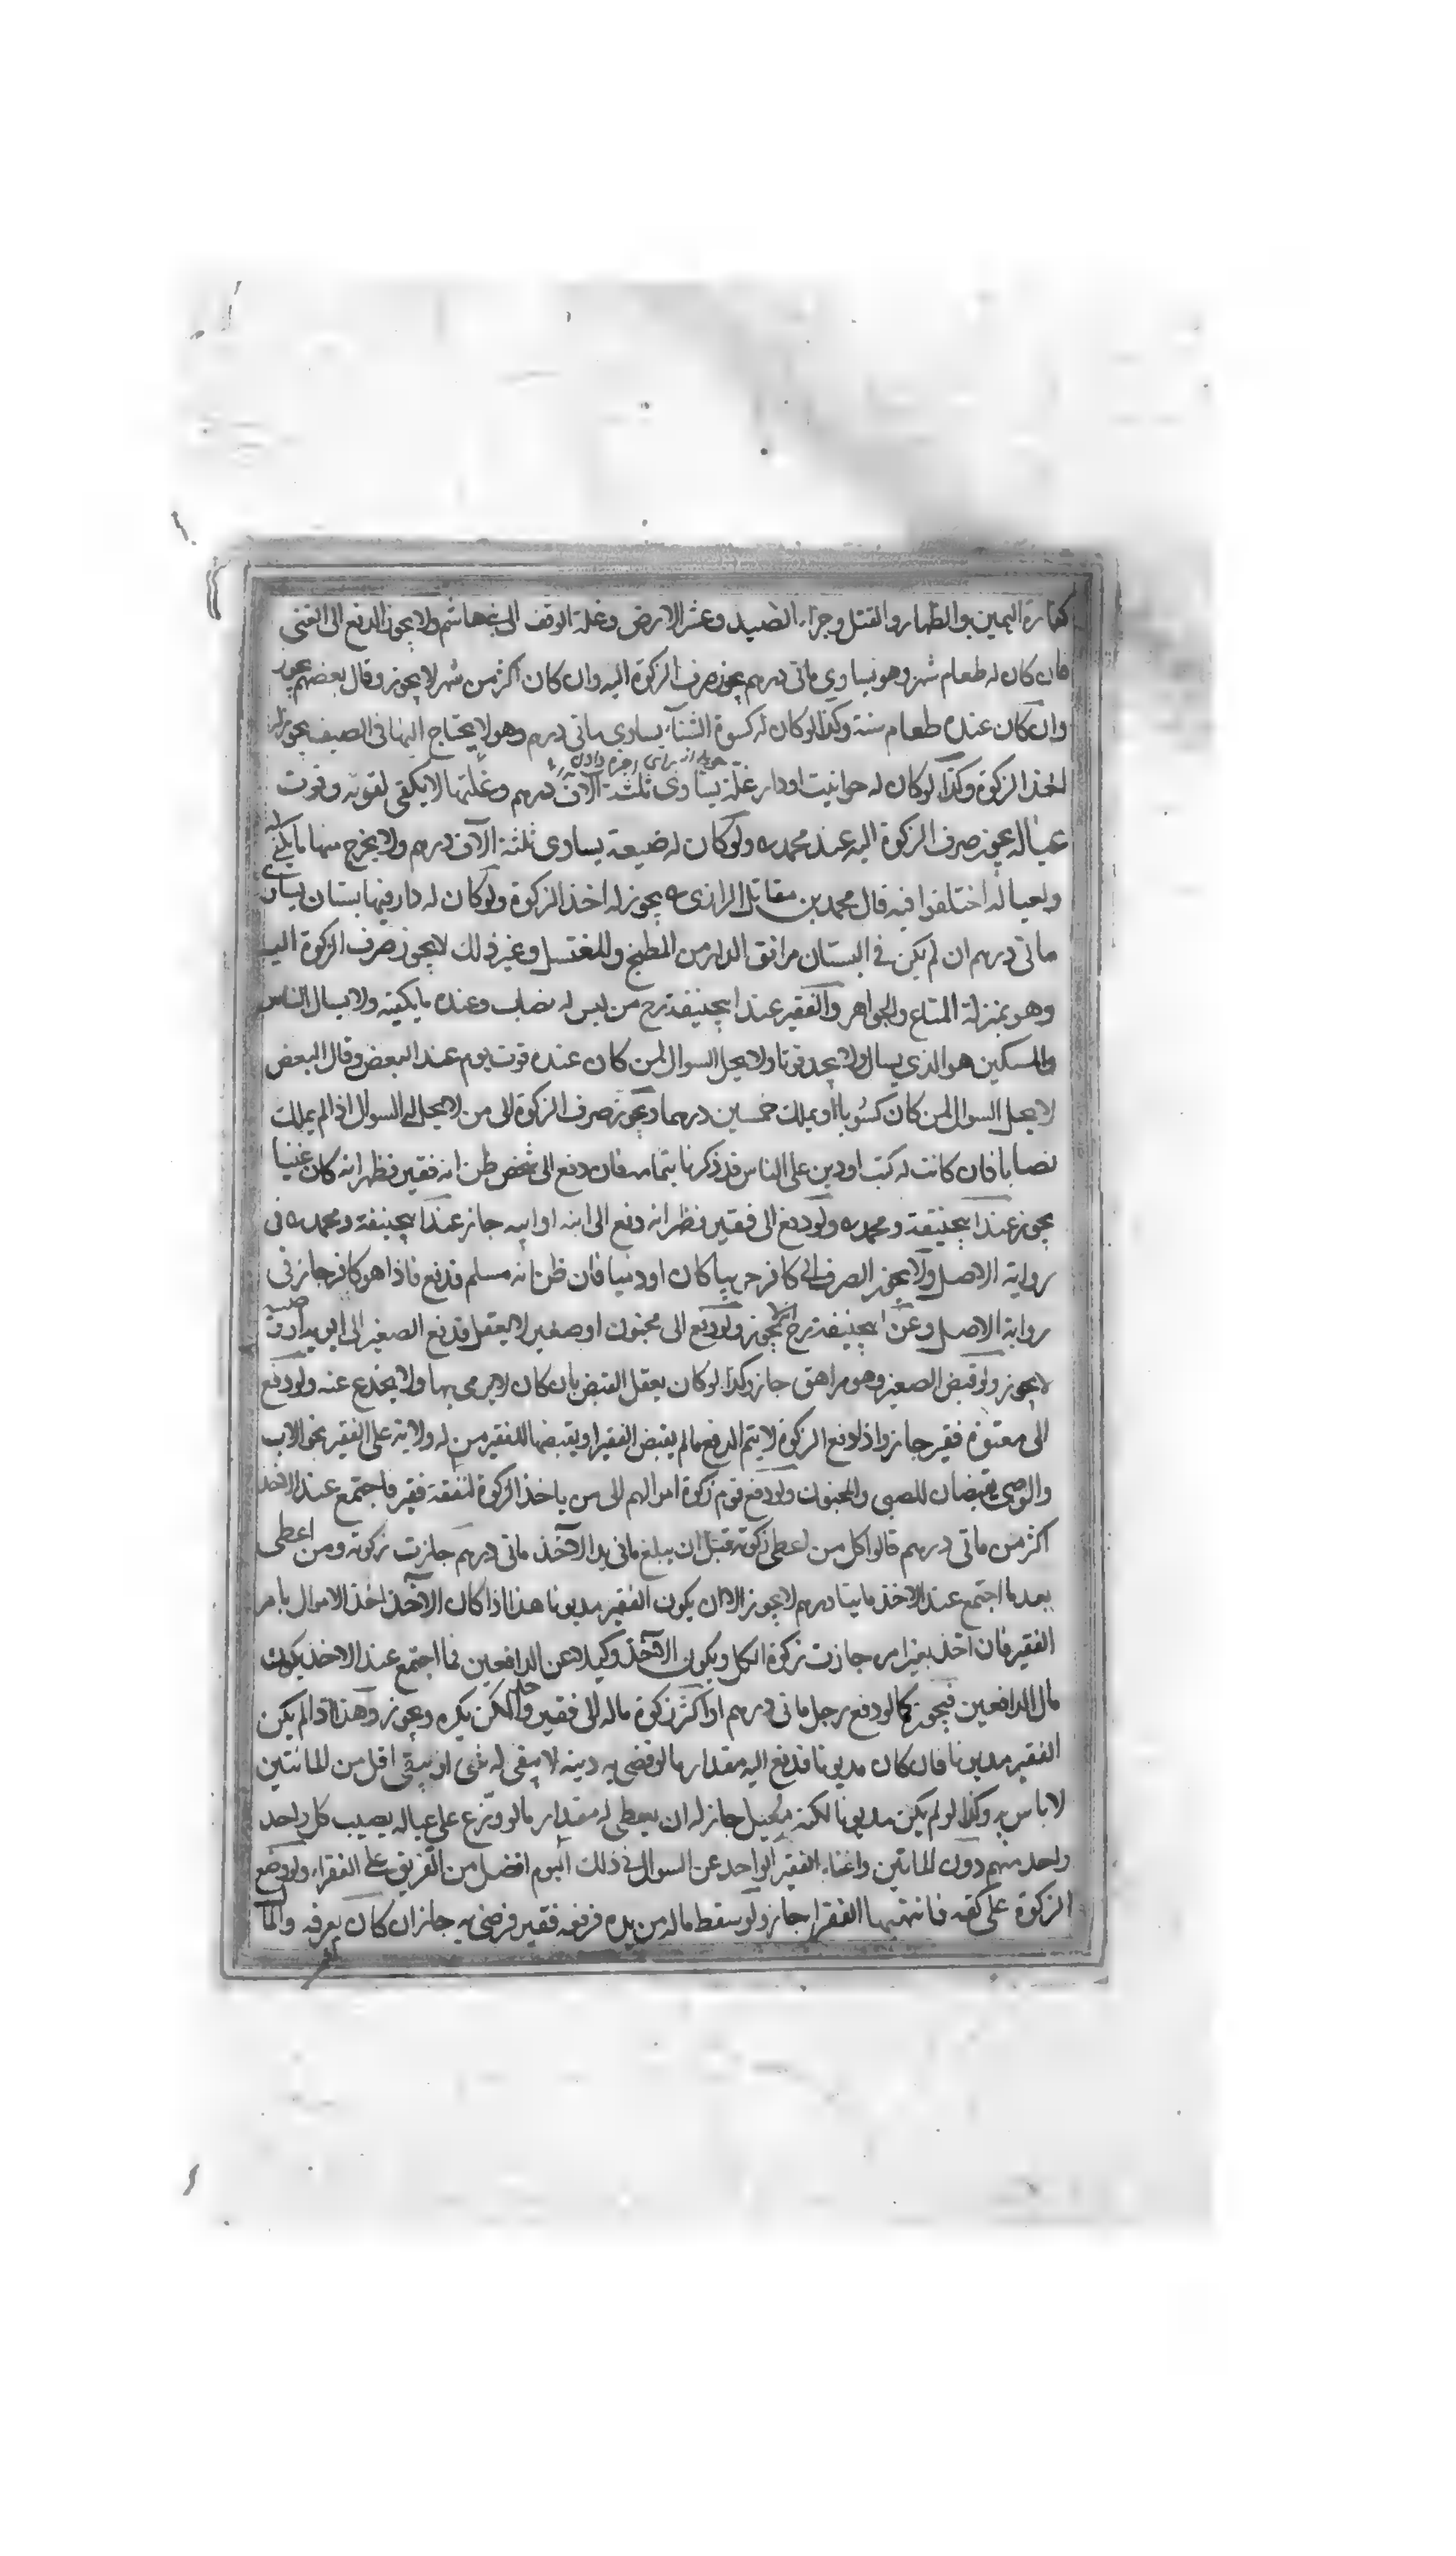 كفارة اليمين والظهار والقتل وجزاء الصيد وعشر الارض وغلة الوقف الى بنى هاشم ولا يجوز الدفع الى الغنى
فان كان له طعام شهر وهو يساوى مائى درهم يجوز صرف الزكوة اليه وان كان اكثر من شهر لا يجوز وقال بعضهم يجوز
وان كان عنده طعام سنة وكذا لو كان له كسوة الشتاء يساوى مائى درهم وهو لا يحتاج اليها فى الصيف يجوز له
اخذ الزكوة وكذا لو كان له حوانيت او دار غلة يساوى ثلثة آلاف درهم وغلتها لا يكفى لقوته وقوت
عياله يجوز صرف الزكوة اليه عند محمد ره ولو كان له ضيعة يساوى ثلثة آلاف درهم ولا يخرج منها ما يكفى له
ولعياله اختلفوا فيه قال محمد بن مقاتل الرازى ره يجوز له اخذ الزكوة ولو كان له دار فيها بستان يساوى
مائى درهم ان لم يكن فى البستان مرافق الدار من المطبخ والمغتسل وغير ذلك لا يجوز صرف الزكوة اليه
وهو بمنزلة المتاع والجواهر والفقير عند ابيحنيفة رح من ليس له نصاب وعنده ما يكفيه ولا يسال الناس
والمسكين هو الذى يسال ولا يجد قوتا ولا يحل السوال لمن كان عنده قوت يوم عند البعض وقال البعض
لا يحل السوال لمن كان كسوبا او يملك خمسين درهما ويجوز صرف الزكوة الى من لا يحل له السوال اذا لم يملك
نصابا فان كانت له كتب او دين على الناس قد ذكرنا بتمامه فان دفع الى شخص ظن انه فقير فظهر انه كان غنيا
يجوز عند ابيحنيفة ومحمد ره ولو دفع الى فقير فظهر انه دفع الى ابنه او ابيه جاز عند ابيحنيفة ومحمد ره فى
رواية الاصل ولا يجوز الصرف الى كافر حربيا كان او ذميا فان ظن انه مسلم فدفع فاذا هو كافر جاز فى
رواية الاصل وعن ابيحنيفة رح انه لا يجوز ولو دفع الى مجنون او صغير لا يعقل فدفع الصغير الى ابويه او وصيه
لا يجوز ولو قبض الصغير وهو مراهق جاز وكذا لو كان يعقل القبض بان كان لا يرمى بها ولا يخدع عنه ولو دفع
الى معتوه فقير جاز واذا دفع الزكوة لا يتم الدفع ما لم يقبض الفقير او يقبضها للفقير من له ولاية على الفقير نحو الاب
والوصى يقبضان للصبى والمجنون ولو دفع قوم زكوة اموالهم الى من ياخذ الزكوة لنفقة فقير فاجتمع عند الاخذ
اكثر من مائى درهم قالوا كل من اعطى زكوته قبل ان يبلغ ما فى يد الآخذ مائى درهم جازت زكوته ومن اعطى
بعد ما اجتمع عند الاخذ مايتا درهم لا يجوز الا ان يكون الفقير مديونا هذا اذا كان الآخذ اخذ الاموال بامر
الفقير فان اخذ بغير امره جازت زكوة الكل ويكون الآخذ وكيلا عن الدافعين فما اجتمع عند الاخذ يكون
مال الدافعين فيجوز كما لو دفع رجل مائى درهم او اكثر زكوة ماله الى فقير واحد لكن يكره ويجوز وهذا اذا لم يكن
الفقير مديونا فان كان مديونا فدفع اليه مقدار ما لو قضى به دينه لا يبقى له شى او يبقى اقل من المائتين
لا باس به وكذا لو لم يكن مديونا لكنه معيل جاز له ان يعطى له مقدار ما لو وزع على عياله يصيب كل واحد
واحد منهم دون المائتين واغناء الفقير الواحد عن السوال فى ذلك اليوم افضل من التفريق على الفقراء ولو وضع
الزكوة على كفه فانتهبها الفقراء جاز ولو سقط ماله من يده فرفعه فقير فرضى به جاز ان كان يعرفه والمال